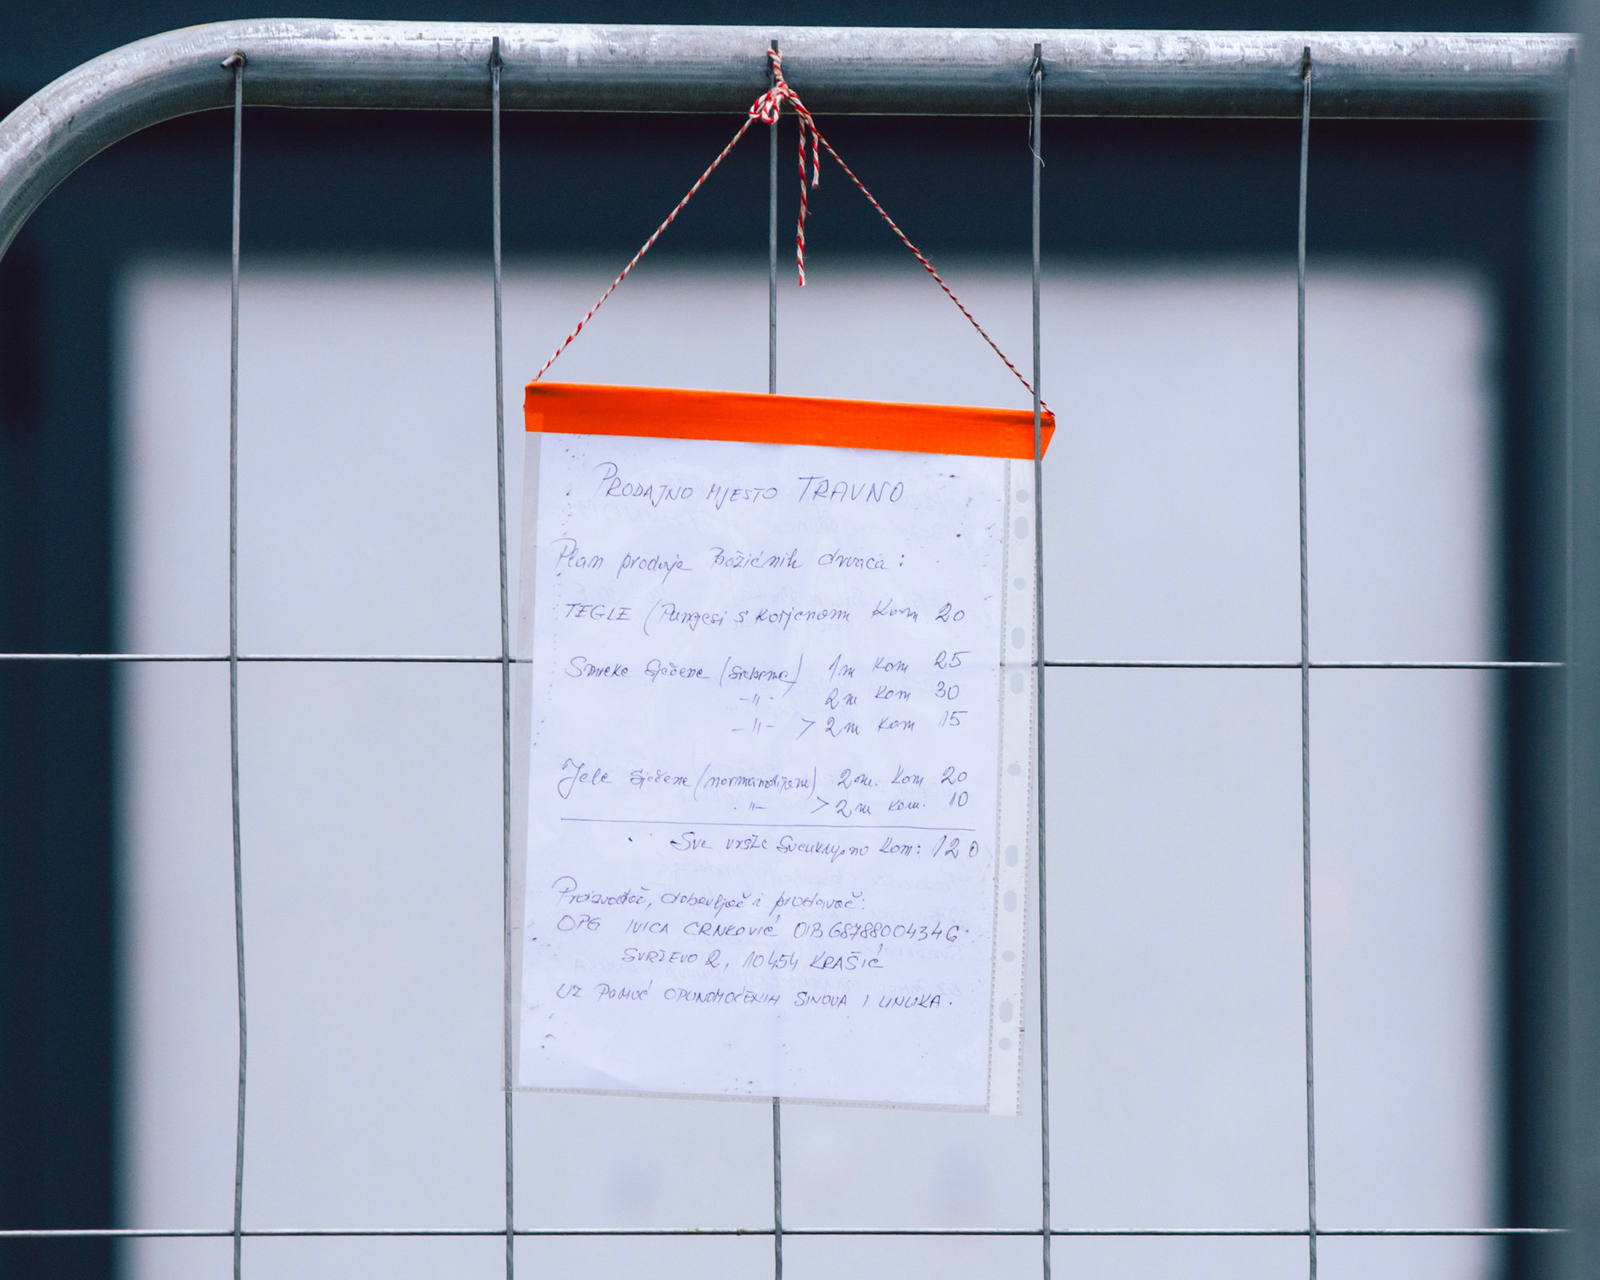 PRODAJNO MJESTO TRAVNO
Plan prodaje Božićnih drvaca:
TEGLE (Pungesi s korjenom Kom 20
Smreke sječene (srebrne) 1m Kom 25
-"- 2m Kom 30
-"- > 2m Kom 15
Jele sječene (normandijane) 2m. Kom 20
-"- > 2m Kom. 10
Sve vrste sveukupno Kom: 120
Proizvođač, dobavljač i prodavač:
OPG IVICA CRNKOVIĆ OIB
SVRŽEVO 2, 10454 KRAŠIĆ
UZ POMOĆ OPUNOMOĆENIH SINOVA I UNUKA.